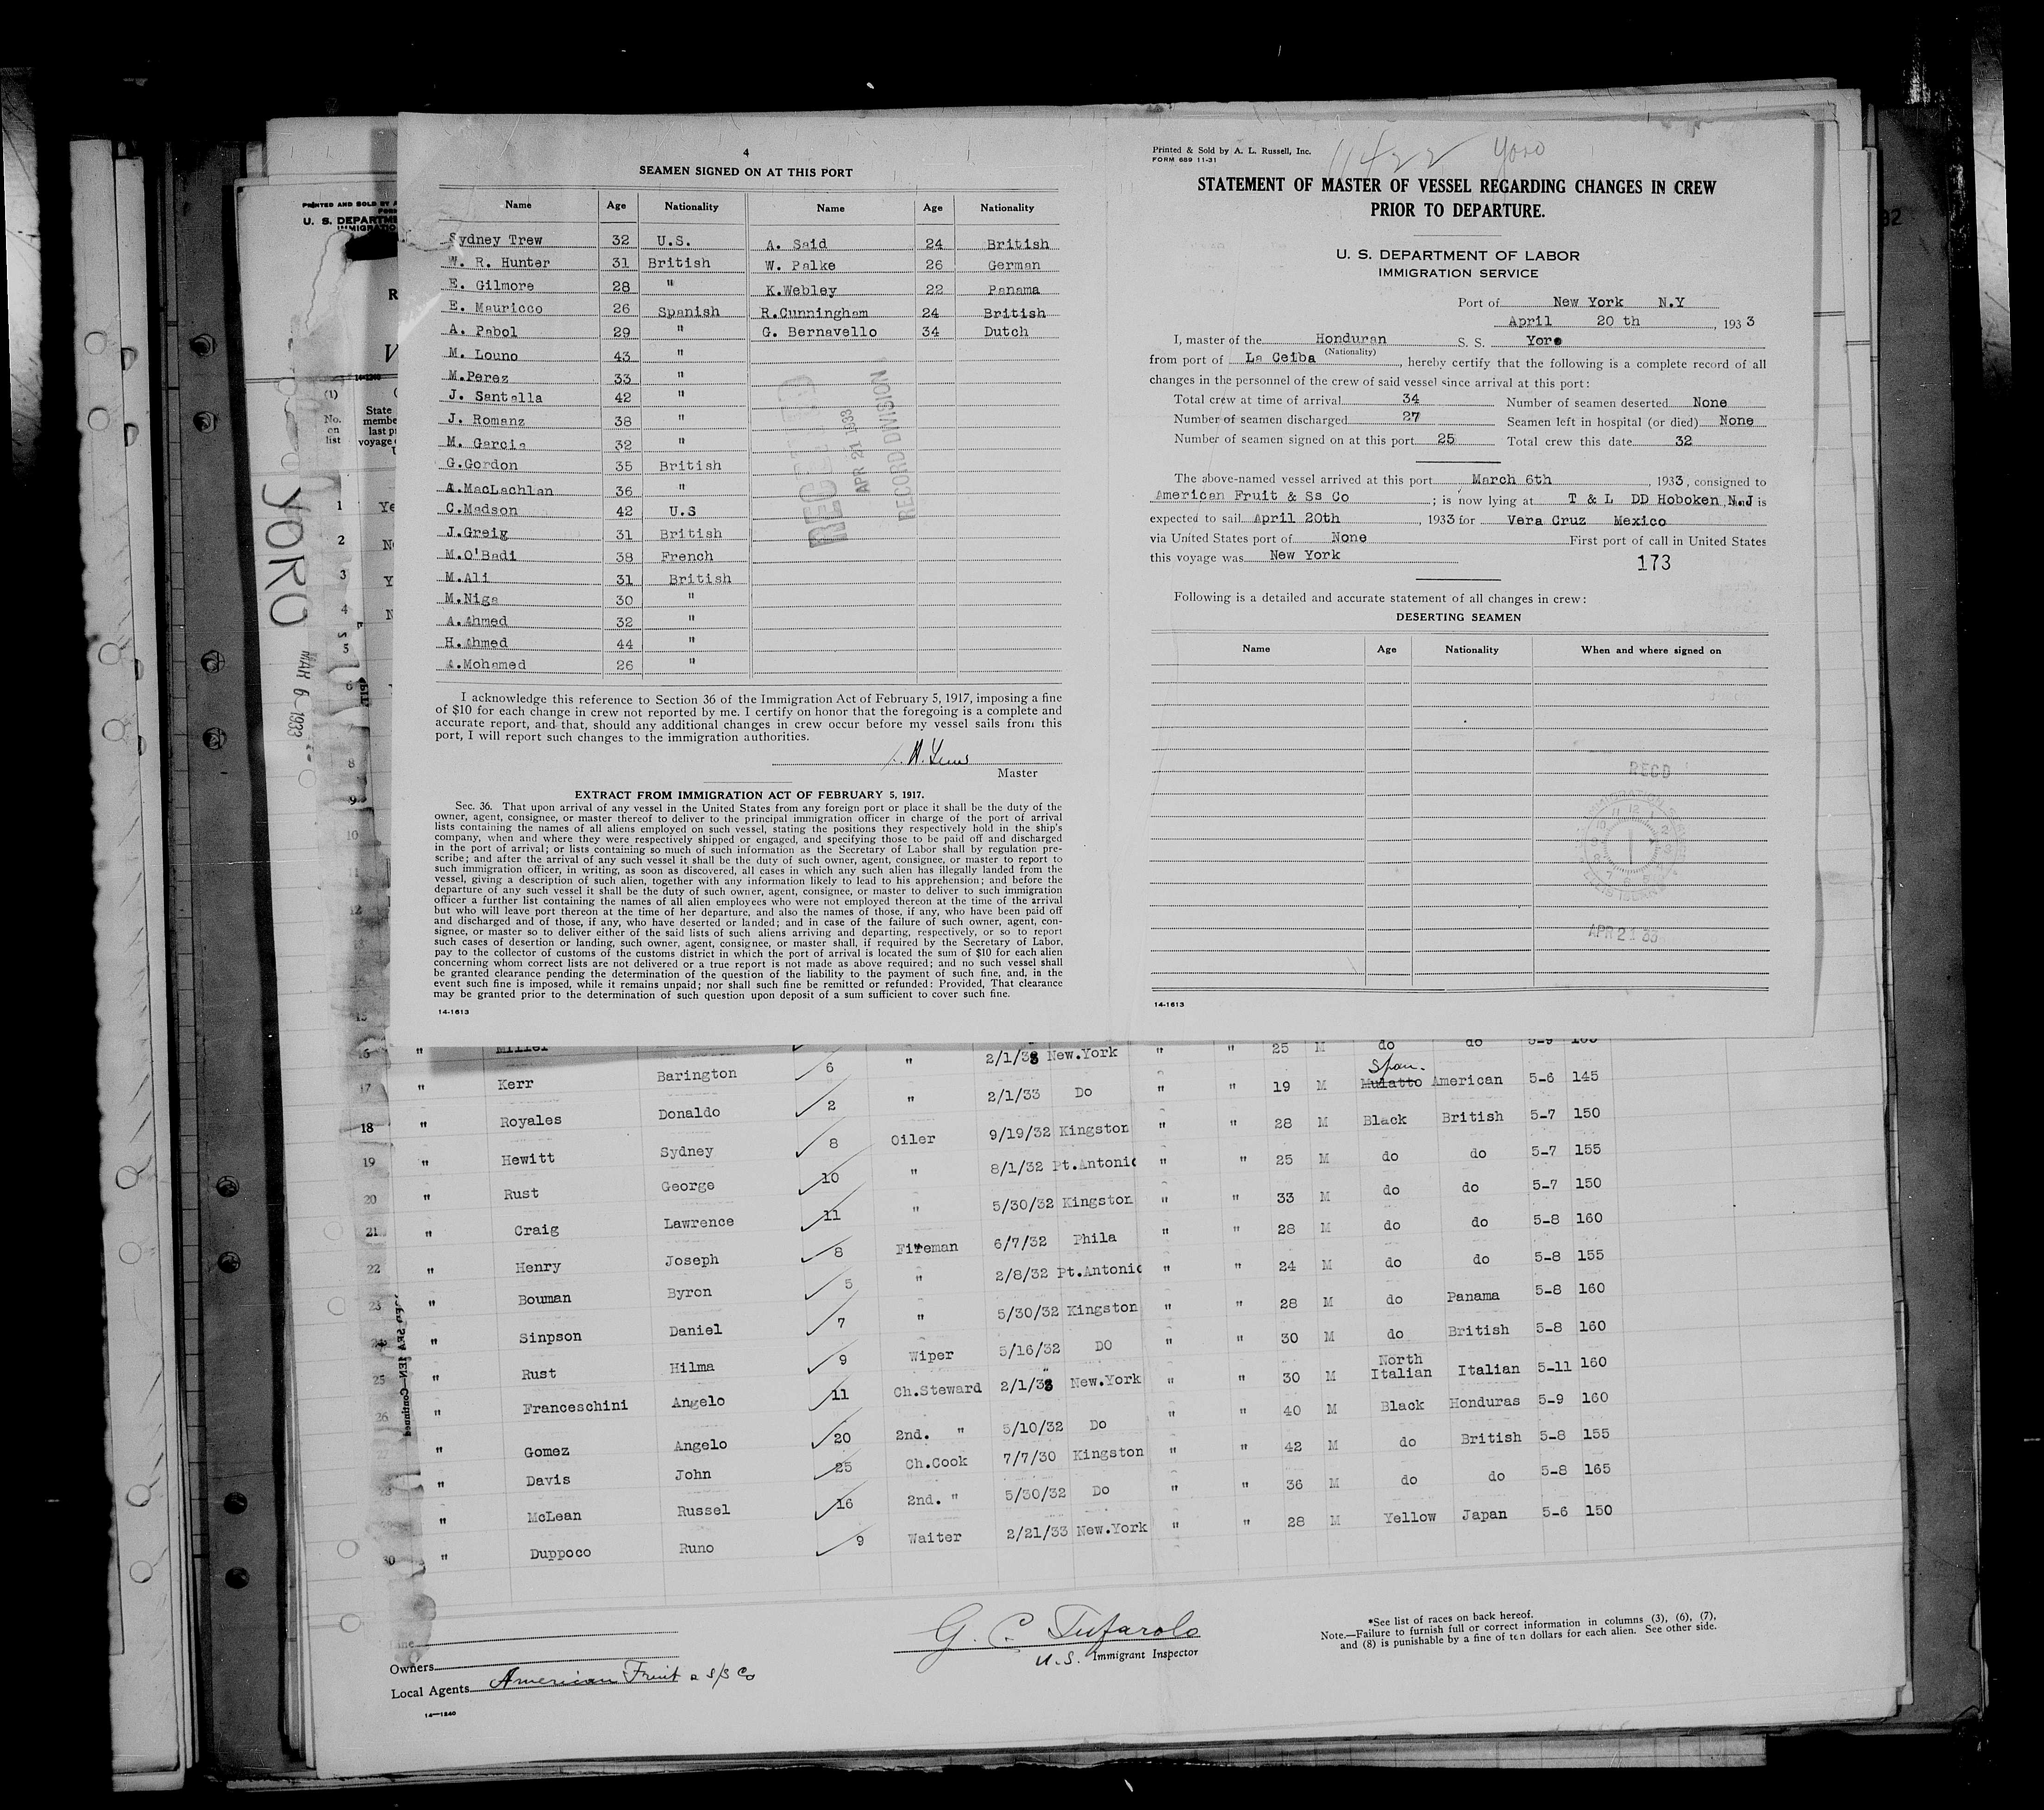 4
SEAMEN SIGNED ON AT THIS PORT
Name Age Nationality Name Age Nationality
Sydney Trew 32 U.S. A. Said 24 British
W. R. Hunter 31 British W. Palke 26 German
E. Gilmore 28 " K.Webley 22 Panama
E. Mauricco 26 Spanish R.Cunningham 24 British
A. Pabol 29 " G. Bernavello 34 Dutch
M. Louno 43 "
M.Perez 33 "
J. Santalla 42 "
J. Romanz 38 "
M. Garcia 32 "
G.Gordon 35 British
A.MacLachlan 36 "
C.Madson 42 U.S
J.Greig 31 British
M.O'Badi 38 French
M.Ali 31 British
M.Niga 30 "
A.Ahmed 32 "
H.Ahmed 44 "
A.Mohamed 26 "
RECEIVED
APR 21 1933
RECORD DIVISION
I acknowledge this reference to Section 36 of the Immigration Act of February 5, 1917, imposing a fine
of $10 for each change in crew not reported by me. I certify on honor that the foregoing is a complete and
accurate report, and that, should any additional changes in crew occur before my vessel sails from this
port, I will report such changes to the immigration authorities.
Master
EXTRACT FROM IMMIGRATION ACT OF FEBRUARY 5, 1917.
Sec. 36. That upon arrival of any vessel in the United States from any foreign port or place it shall be the duty of the
owner, agent, consignee, or master thereof to deliver to the principal immigration officer in charge of the port of arrival
lists containing the names of all aliens employed on such vessel, stating the positions they respectively hold in the ship's
company, when and where they were respectively shipped or engaged, and specifying those to be paid off and discharged
in the port of arrival; or lists containing so much of such information as the Secretary of Labor shall by regulation pre-
scribe; and after the arrival of any such vessel it shall be the duty of such owner, agent, consignee, or master to report to
such immigration officer, in writing, as soon as discovered, all cases in which any such alien has illegally landed from the
vessel, giving a description of such alien, together with any information likely to lead to his apprehension; and before the
departure of any such vessel it shall be the duty of such owner, agent, consignee, or master to deliver to such immigration
officer a further list containing the names of all alien employees who were not employed thereon at the time of the arrival
but who will leave port thereon at the time of her departure, and also the names of those, if any, who have been paid off
and discharged and of those, if any, who have deserted or landed; and in case of the failure of such owner, agent, con-
signee, or master so to deliver either of the said lists of such aliens arriving and departing, respectively, or so to report
such cases of desertion or landing, such owner, agent, consignee, or master shall, if required by the Secretary of Labor,
pay to the collector of customs of the customs district in which the port of arrival is located the sum of $10 for each alien
concerning whom correct lists are not delivered or a true report is not made as above required; and no such vessel shall
be granted clearance pending the determination of the question of the liability to the payment of such fine, and, in the
event such fine is imposed, while it remains unpaid; nor shall such fine be remitted or refunded: Provided, That clearance
may be granted prior to the determination of such question upon deposit of a sum sufficient to cover such fine.
14-1613
Printed & Sold by A. L. Russell, Inc.
FORM 689 11-31
11422 Yoro
STATEMENT OF MASTER OF VESSEL REGARDING CHANGES IN CREW
PRIOR TO DEPARTURE.
U. S. DEPARTMENT OF LABOR
IMMIGRATION SERVICE
Port of New York N.Y
April 20 th, 1933
I, master of the Honduran S. S. Yoro
(Nationality)
from port of La Ceiba, hereby certify that the following is a complete record of all
changes in the personnel of the crew of said vessel since arrival at this port:
Total crew at time of arrival 34 Number of seamen deserted None
Number of seamen discharged 27 Seamen left in hospital (or died) None
Number of seamen signed on at this port 25 Total crew this date 32
The above-named vessel arrived at this port March 6th, 1933, consigned to
American Fruit & Ss Co; is now lying at T & L DD Hoboken N.J is
expected to sail April 20th, 1933 for Vera Cruz Mexico
via United States port of None First port of call in United States
this voyage was New York
173
Following is a detailed and accurate statement of all changes in crew:
DESERTING SEAMEN
Name Age Nationality When and where signed on
RECD
APR 21 33
14-1613
PRINTED AND SOLD BY
U. S. DEPARTM
IMMIGRATIO
(1)
No. on list
State
membe
last p
voyage
YORO
MAR 6 - 1933
1 Ye
2 N
3 Y
4 N
5
6
8
9
10
12
15
16 " Miller " 2/1/33 New.York " " 25 M do do 5-9
17 " Kerr Barington 6 " 2/1/33 Do " " 19 M Span. Mulatto American 5-6 145
18 " Royales Donaldo 2 Oiler 9/19/32 Kingston " " 28 M Black British 5-7 150
19 " Hewitt Sydney 8 " 8/1/32 Pt.Antonio " " 25 M do do 5-7 155
20 " Rust George 10 " 5/30/32 Kingston " " 33 M do do 5-7 150
21 " Craig Lawrence 11 Fireman 6/7/32 Phila " " 28 M do do 5-8 160
22 " Henry Joseph 8 " 2/8/32 Pt.Antonio " " 24 M do do 5-8 155
23 " Bouman Byron 5 " 5/30/32 Kingston " " 28 M do Panama 5-8 160
24 " Sinpson Daniel 7 Wiper 5/16/32 DO " " 30 M do British 5-8 160
25 " Rust Hilma 9 Ch.Steward 2/1/33 New.York " " 30 M North Italian Italian 5-11 160
26 " Franceschini Angelo 11 2nd. " 5/10/32 Do " " 40 M Black Honduras 5-9 160
" Gomez Angelo 20 Ch.Cook 7/7/30 Kingston " " 42 M do British 5-8 155
" Davis John 25 2nd. " 5/30/32 Do " " 36 M do do 5-8 165
" McLean Russel 16 Waiter 2/21/33 New.York " " 28 M Yellow Japan 5-6 150
30 " Duppoco Runo 9
Line
Owners
Local Agents American Fruit & S/S Co
14—1240
G. C. Tufarolo
U.S. Immigrant Inspector
*See list of races on back hereof.
Note.—Failure to furnish full or correct information in columns (3), (6), (7),
and (8) is punishable by a fine of ten dollars for each alien. See other side.